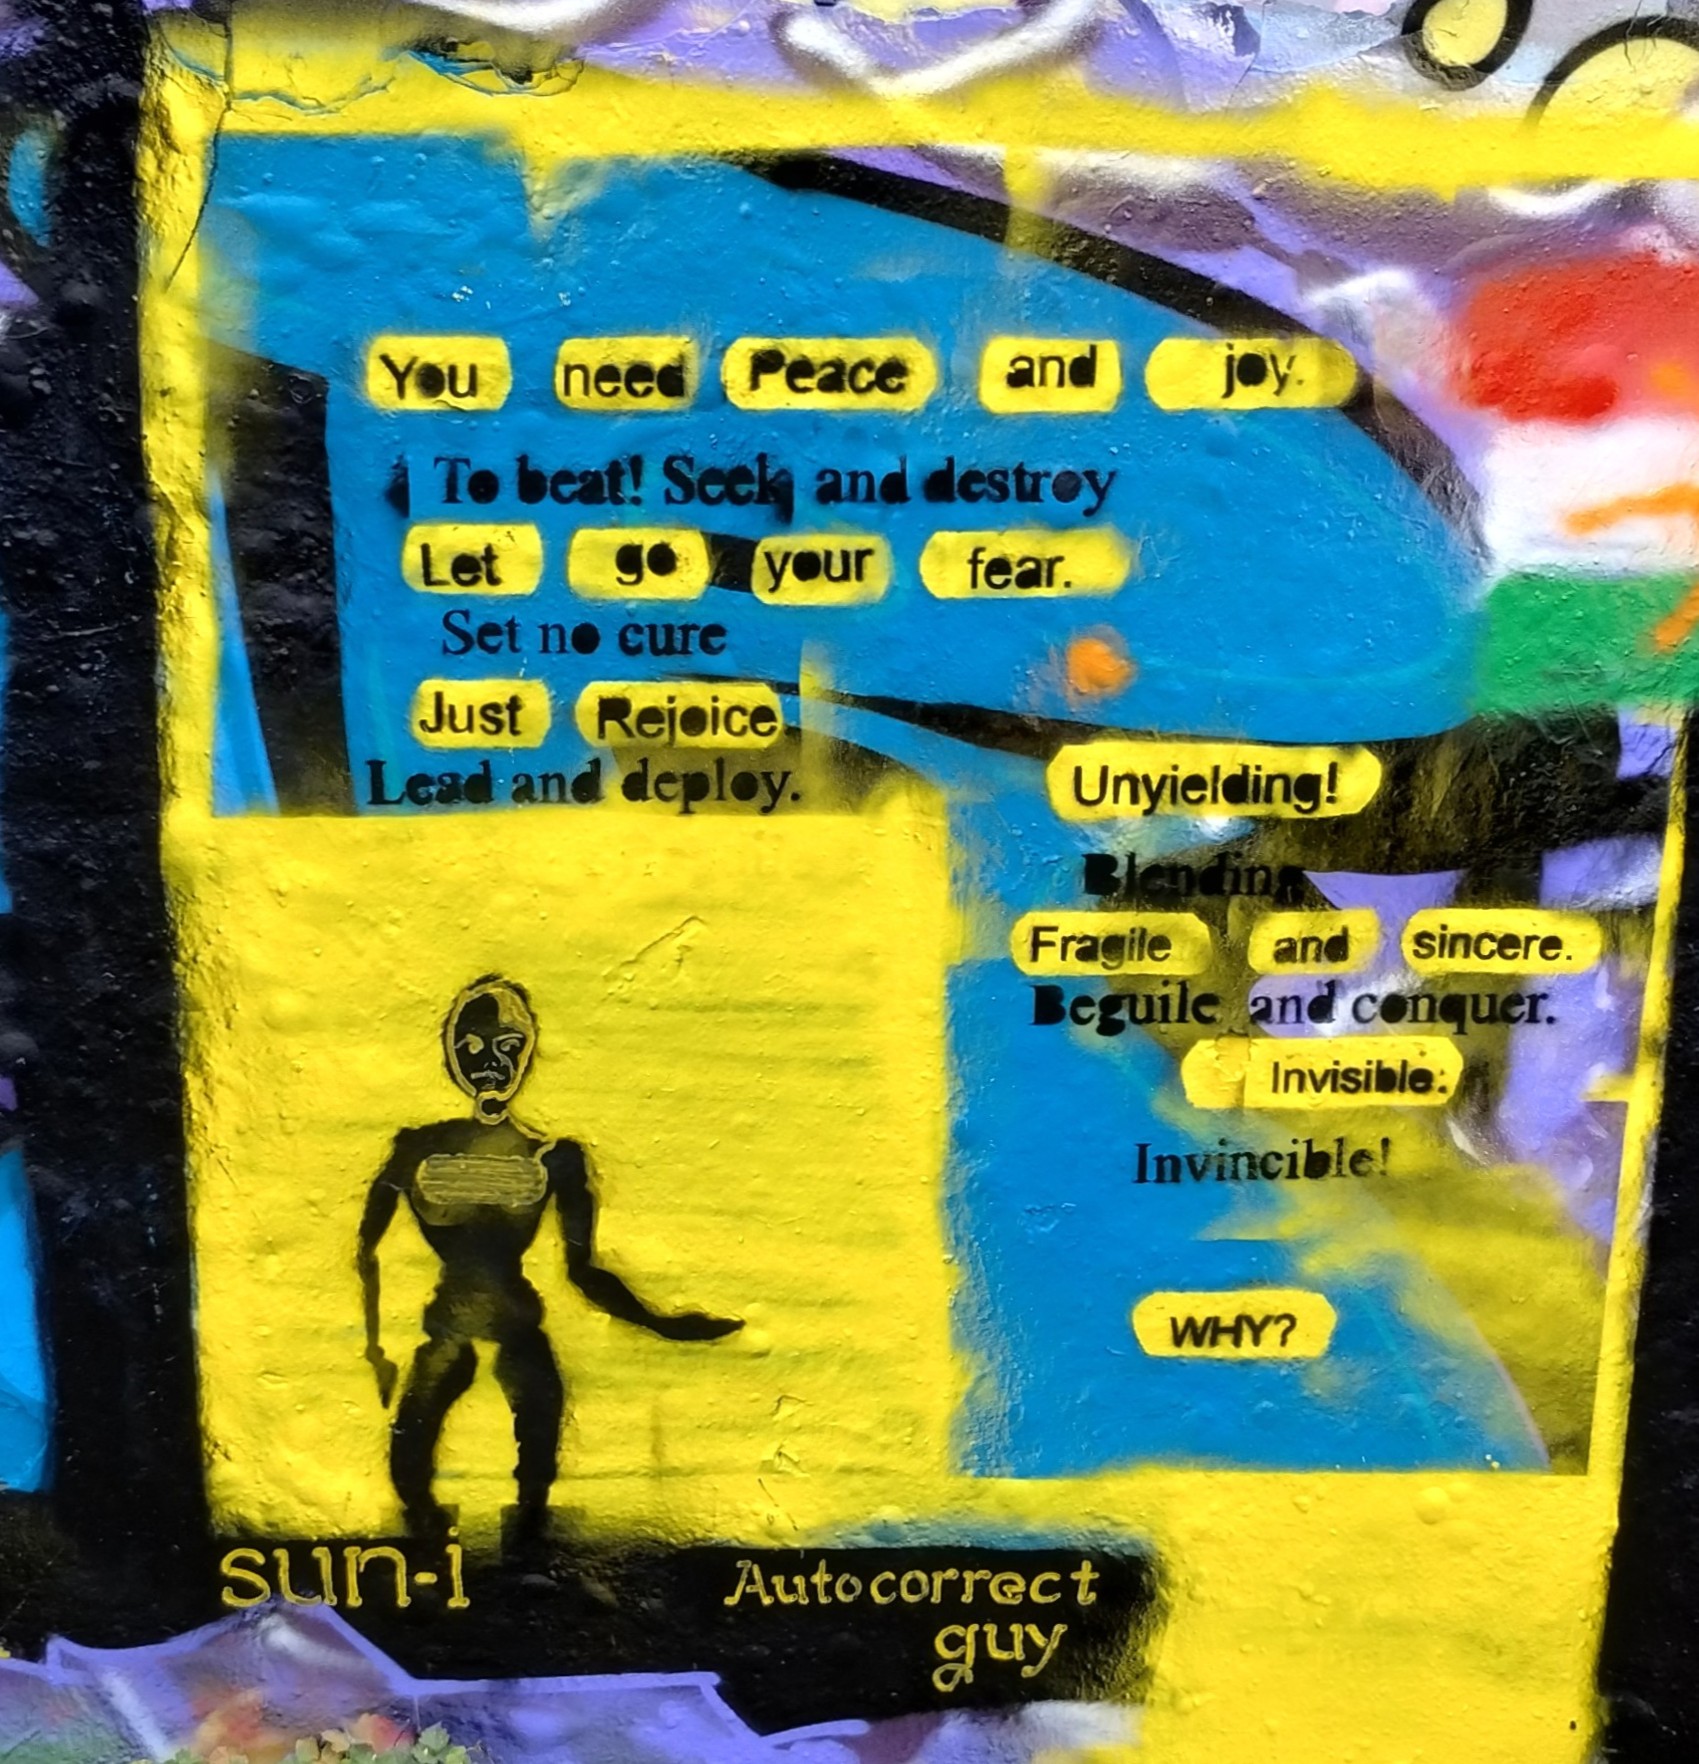 You need Peace and joy.
To beat! Seek and destroy
Let go your fear.
Set no cure
Just Rejoice
Lead and deploy.
Unyielding!
Blending
Fragile and sincere.
Beguile and conquer.
Invisible:
Invincible!
WHY?
sun-i
Autocorrect
guy